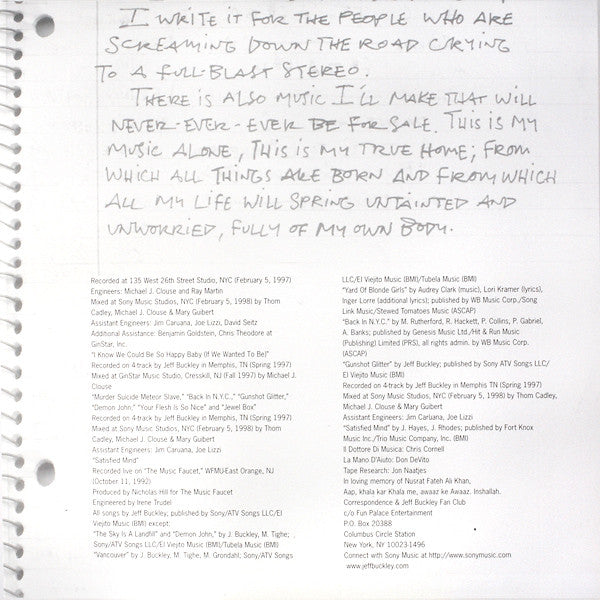 I WRITE IT FOR THE PEOPLE WHO ARE
SCREAMING DOWN THE ROAD CRYING
TO A FULL-BLAST STEREO.
THERE IS ALSO MUSIC I'LL MAKE THAT WILL
NEVER-EVER-EVER BE FOR SALE. THIS IS MY
MUSIC ALONE, THIS IS MY TRUE HOME; FROM
WHICH ALL THINGS ARE BORN AND FROM WHICH
ALL MY LIFE WILL SPRING UNTAINTED AND
UNWORRIED, FULLY OF MY OWN BODY.
Recorded at 135 West 26th Street Studio, NYC (February 5, 1997)
Engineers: Michael J. Clouse and Ray Martin
Mixed at Sony Music Studios, NYC (February 5, 1998) by Thom
Cadley, Michael J. Clouse & Mary Guibert
Assistant Engineers: Jim Caruana, Joe Lizzi, David Seitz
Additional Assistance: Benjamin Goldstein, Chris Theodore at
GriStar, Inc.
"I Know We Could Be So Happy Baby (If We Wanted To Be)"
Recorded on 4-track by Jeff Buckley in Memphis, TN (Spring 1997)
Mixed at GriStar Music Studio, Cresskill, NJ (Fall 1997) by Michael J.
Clouse
"Murder Suicide Meteor Slave," "Back In N.Y.C.," "Gunshot Glitter,"
"Demon John," "Your Flesh Is So Nice" and "Jewel Box"
Recorded on 4-track by Jeff Buckley in Memphis, TN (Spring 1997)
Mixed at Sony Music Studios, NYC (February 5, 1998) by Thom
Cadley, Michael J. Clouse & Mary Guibert
Assistant Engineers: Jim Caruana, Joe Lizzi
"Satisfied Mind"
Recorded live on "The Music Faucet," WFMU-East Orange, NJ
(October 11, 1992)
Produced by Nicholas Hill for The Music Faucet
Engineered by Irene Trudel
All songs by Jeff Buckley; published by Sony/ATV Songs LLC/El
Viejito Music (BMI) except:
"The Sky Is A Landfill" and "Demon John," by J. Buckley, M. Tighe;
Sony/ATV Songs LLC/El Viejito Music (BMI)/Tubela Music (BMI)
"Vancouver" by J. Buckley, M. Tighe, M. Grondahl; Sony/ATV Songs
LLC/El Viejito Music (BMI)/Tubela Music (BMI)
"Yard Of Blonde Girls" by Audrey Clark (music), Lori Kramer (lyrics),
Inger Lorre (additional lyrics); published by WB Music Corp./Song
Link Music/Stewed Tomatoes Music (ASCAP)
"Back In N.Y.C." by M. Rutherford, R. Hackett, P. Collins, P. Gabriel,
A. Banks; published by Genesis Music Ltd./Hit & Run Music
(Publishing) Limited (PRS), all rights admin. by WB Music Corp.
(ASCAP)
"Gunshot Glitter" by Jeff Buckley; published by Sony ATV Songs LLC/
El Viejito Music (BMI)
Recorded on 4-track by Jeff Buckley in Memphis TN (Spring 1997)
Mixed at Sony Music Studios, NYC (February 5, 1998) by Thom Cadley,
Michael J. Clouse & Mary Guibert
Assistant Engineers: Jim Caruana, Joe Lizzi
"Satisfied Mind" by J. Hayes, J. Rhodes; published by Fort Knox
Music Inc./Trio Music Company, Inc. (BMI)
Il Dottore Di Musica: Chris Cornell
La Mano D'Aiuto: Don DeVito
Tape Research: Jon Naatjes
In loving memory of Nusrat Fateh Ali Khan,
Aap, khala kar Khala me, awaaz ke Awaaz. Inshallah.
Correspondence & Jeff Buckley Fan Club
c/o Fun Palace Entertainment
P.O. Box 20388
Columbus Circle Station
New York, NY 10023-1496
Connect with Sony Music at http://www.sonymusic.com
www.jeffbuckley.com